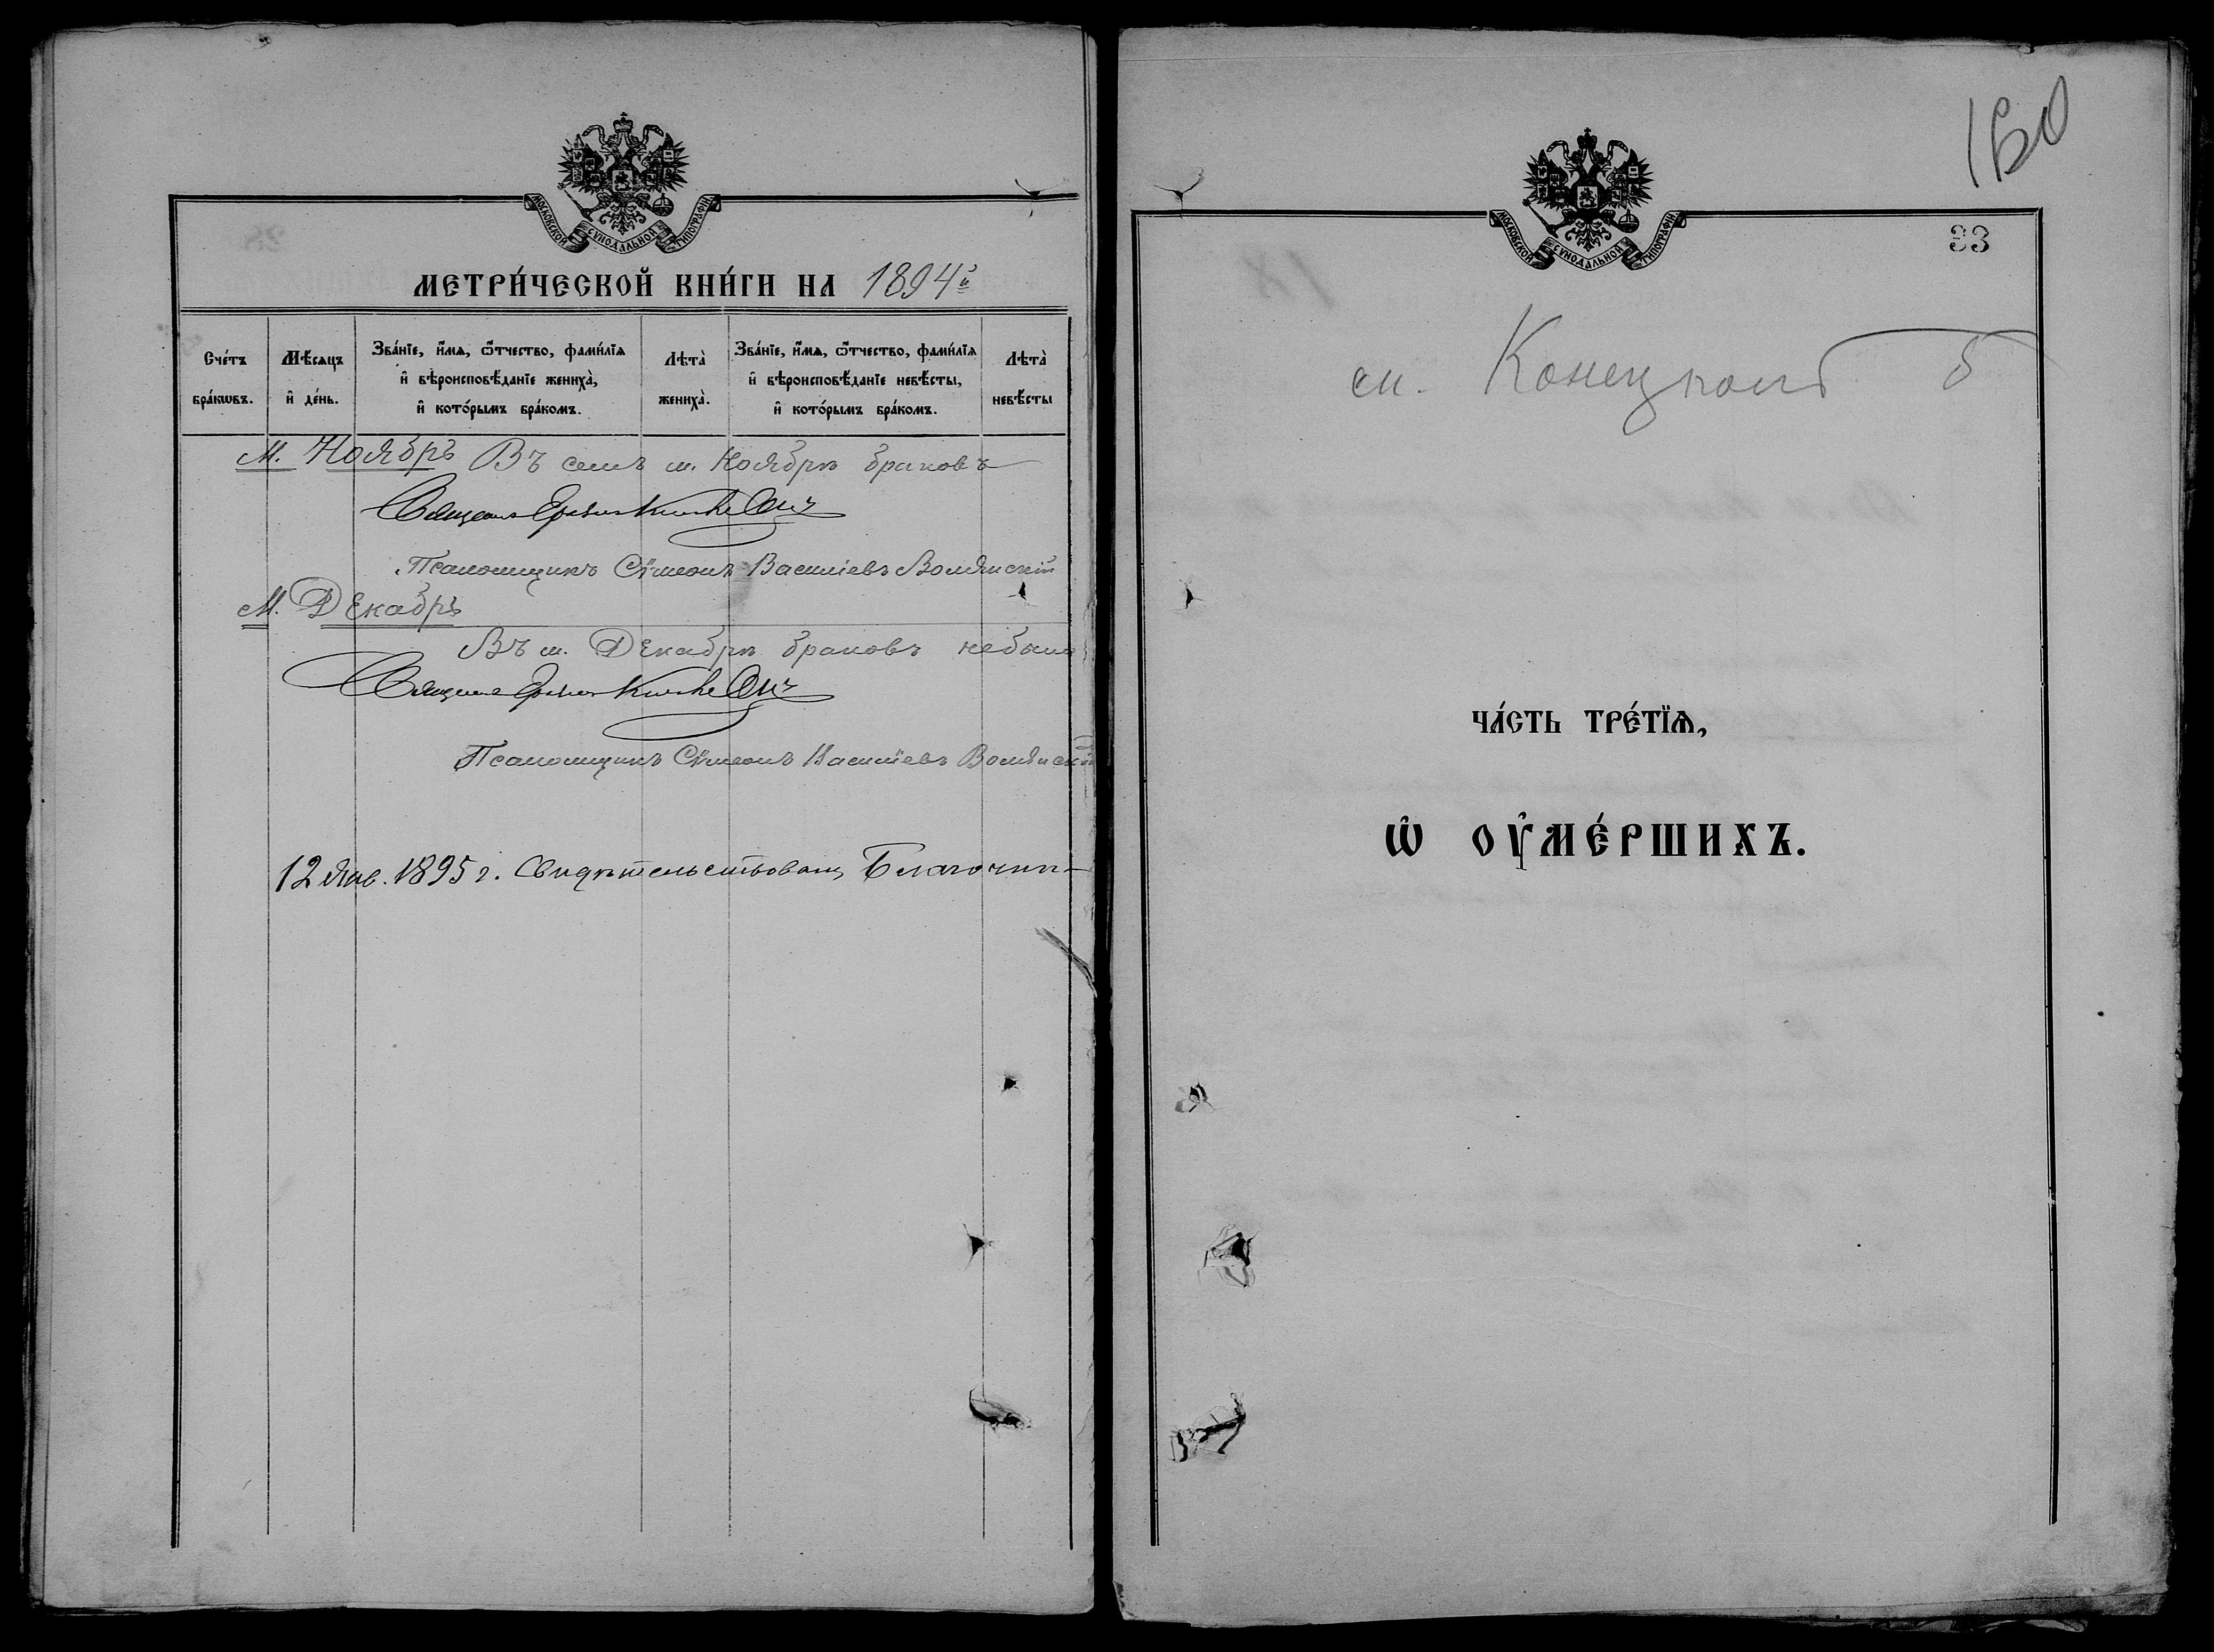 МОСКОВСКОЙ СѴНОДАЛЬНОЙ ТИПОГРАФІИ
МЕТРИ́ЧЕСКОЙ КНИ́ГИ НА 1894й
Счéтъ бра́кѡвъ.
Мѣ́сяцъ и҆ дéнь.
Зва́нїе, и҆́мѧ, ѻ҆́тчество, фами́лїѧ
и҆ вѣроисповѣ́данїе жениха̀,
и҆ кото́рымъ бра́комъ.
Лѣта̀ жениха̀.
Зва́нїе, и҆́мѧ, ѻ҆́тчество, фами́лїѧ
и҆ вѣроисповѣ́данїе невѣ́сты,
и҆ кото́рымъ бра́комъ.
Лѣта̀ невѣ́сты
М. Ноябрь Въ семъ м. Ноябрѣ браковъ
Священ
Псаломщикъ Сѵмеонъ Васильевъ Волянскій
М. Декабрь
Въ м. Декабрѣ браковъ небыло
Священ
Псаломщикъ Сѵмеонъ Васильевъ Волянскій
12 Янв. 1895 г. Свидѣтельствовалъ Благочин-
160
МОСКОВСКОЙ СѴНОДАЛЬНОЙ ТИПОГРАФІИ
33
см.
ЧА́СТЬ ТРЕ́ТЇѦ,
Ѡ҆ ОУ҆МЕ́РШИХЪ.